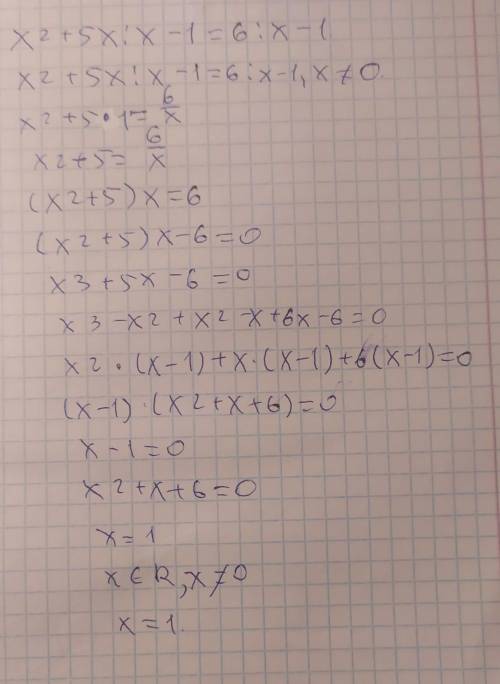 x2+5x:x-1=6:x-1
x2+5x:x-1=6:x-1, x≠0
x2+5•1=6/x
x2+5=6/x
(x2+5)x=6
(x2+5)x-6=0
x3+5x-6=0
x3-x2+x2-x+6x-6=0
x2•(x-1)+x•(x-1)+6(x-1)=0
(x-1)•(x2+x+6)=0
x-1=0
x2+x+6=0
x=1
x∈R, x≠0
x=1.